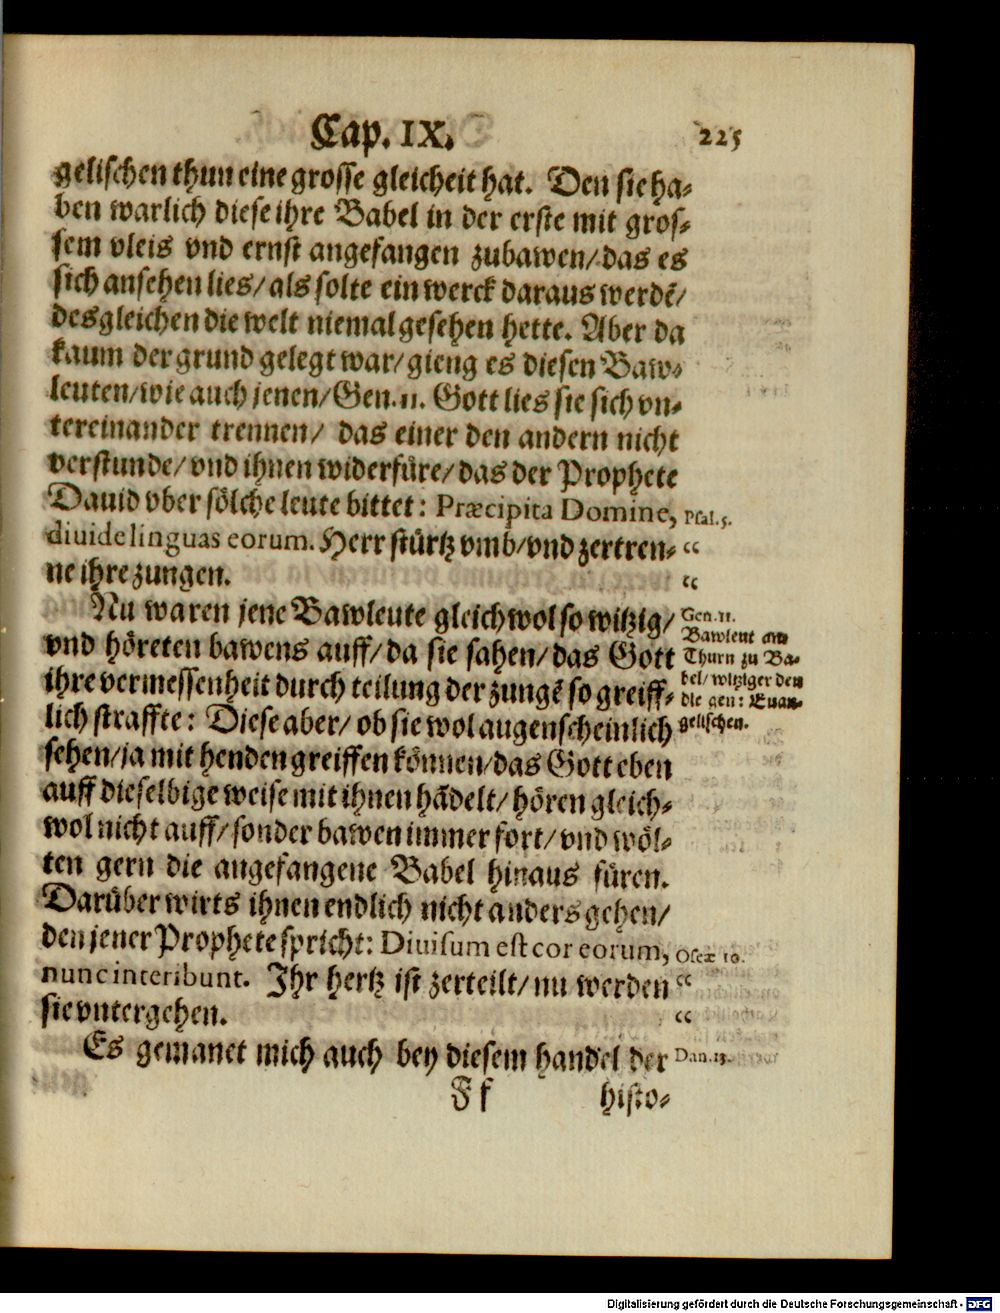 Cap. IX. 225
gelischen thun eine grosse gleicheit hat. Den sie ha⸗
ben warlich diese ihre Babel in der erste mit gros⸗
sem vleis vnd ernst angefangen zubawen/ das es
sich ansehen lies/ als solte ein werck daraus werdẽ/
desgleichen die welt niemal gesehen hette. Aber da
kaum der grund gelegt war/ gieng es diesen Baw⸗
leuten/ wie auch jenen/ Gen. 11. Gott lies sie sich vn⸗
tereinander trennen/ das einer den andern nicht
verstunde/ vnd ihnen widerfüre/ das der Prophete
Dauid vber sölche leute bittet: Præcipita Domine, Psal. 5.
diuide linguas eorum. Herr stürtz vmb/ vnd zertren⸗ “
ne ihre zungen. “
Nu waren jene Bawleute gleichwol so witzig/
vnd höreten bawens auff/ da sie sahen/ das Gott
ihre vermessenheit durch teilung der zungẽ so greiff⸗
lich straffte: Diese aber/ ob sie wol augenscheinlich
Gen. 11.
Bawleut am
Thurn zu Ba⸗
bel/ witziger den
die gen: Euan⸗
gelischen.
sehen/ ja mit henden greiffen können/ das Gott eben
auff dieselbige weise mit ihnen hãdelt/ hören gleich⸗
wol nicht auff/ sonder bawen immer fort/ vnd wöl⸗
ten gern die angefangene Babel hinaus füren.
Darüber wirts ihnen endlich nicht anders gehen/
den jener Prophete spricht: Diuisum est cor eorum, Oseæ 10.
nunc interibunt. Ihr hertz ist zerteilt/ nu werden “
sie vntergehen. “
Es gemanet mich auch bey diesem handel der Dan. 13.
Ff histo⸗
Digitalisierung gefördert durch die Deutsche Forschungsgemeinschaft - DFG